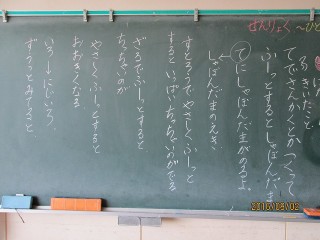 せんりょく 〜ひと
きいたこと
てでさんかくとか つくって
ふーっとするとしゃぼんだま
てにしゃぼんだまがのるよ。
しゃぼんだまのえき
すとろうで やさしく ふーっと
すると いっぱい ちっちゃいのがでる
ざるでふーっとすると
ちっちゃいのが
やさしくふーっとすると
おおきくなる
いろ→にじいろ、
ずっとみてると
2016/08/02